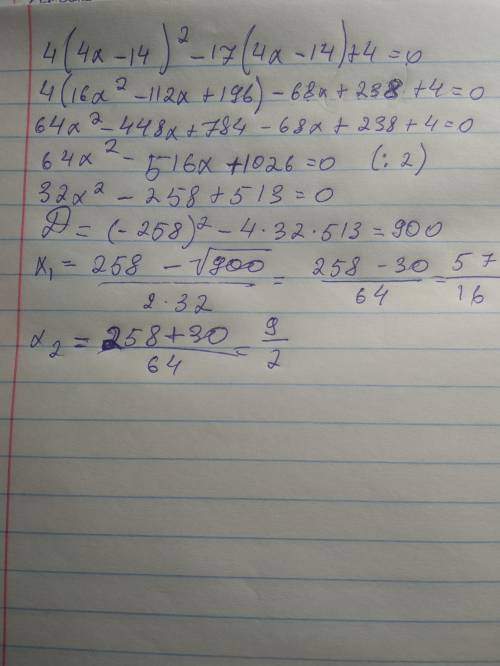 4(4x-14)² -17(4x-14)+4=0
4(16x² -112x+196) -68x+238+4=0
64x² -448x+784 -68x+238+4=0
64x² - 516x+1026=0 (:2)
32x² - 258+513=0
D = (-258)² - 4·32·513=900
x₁ = (258 - √900)/(2·32) = (258 - 30)/64 = 57/16
x₂ = (258+30)/64 = 9/2